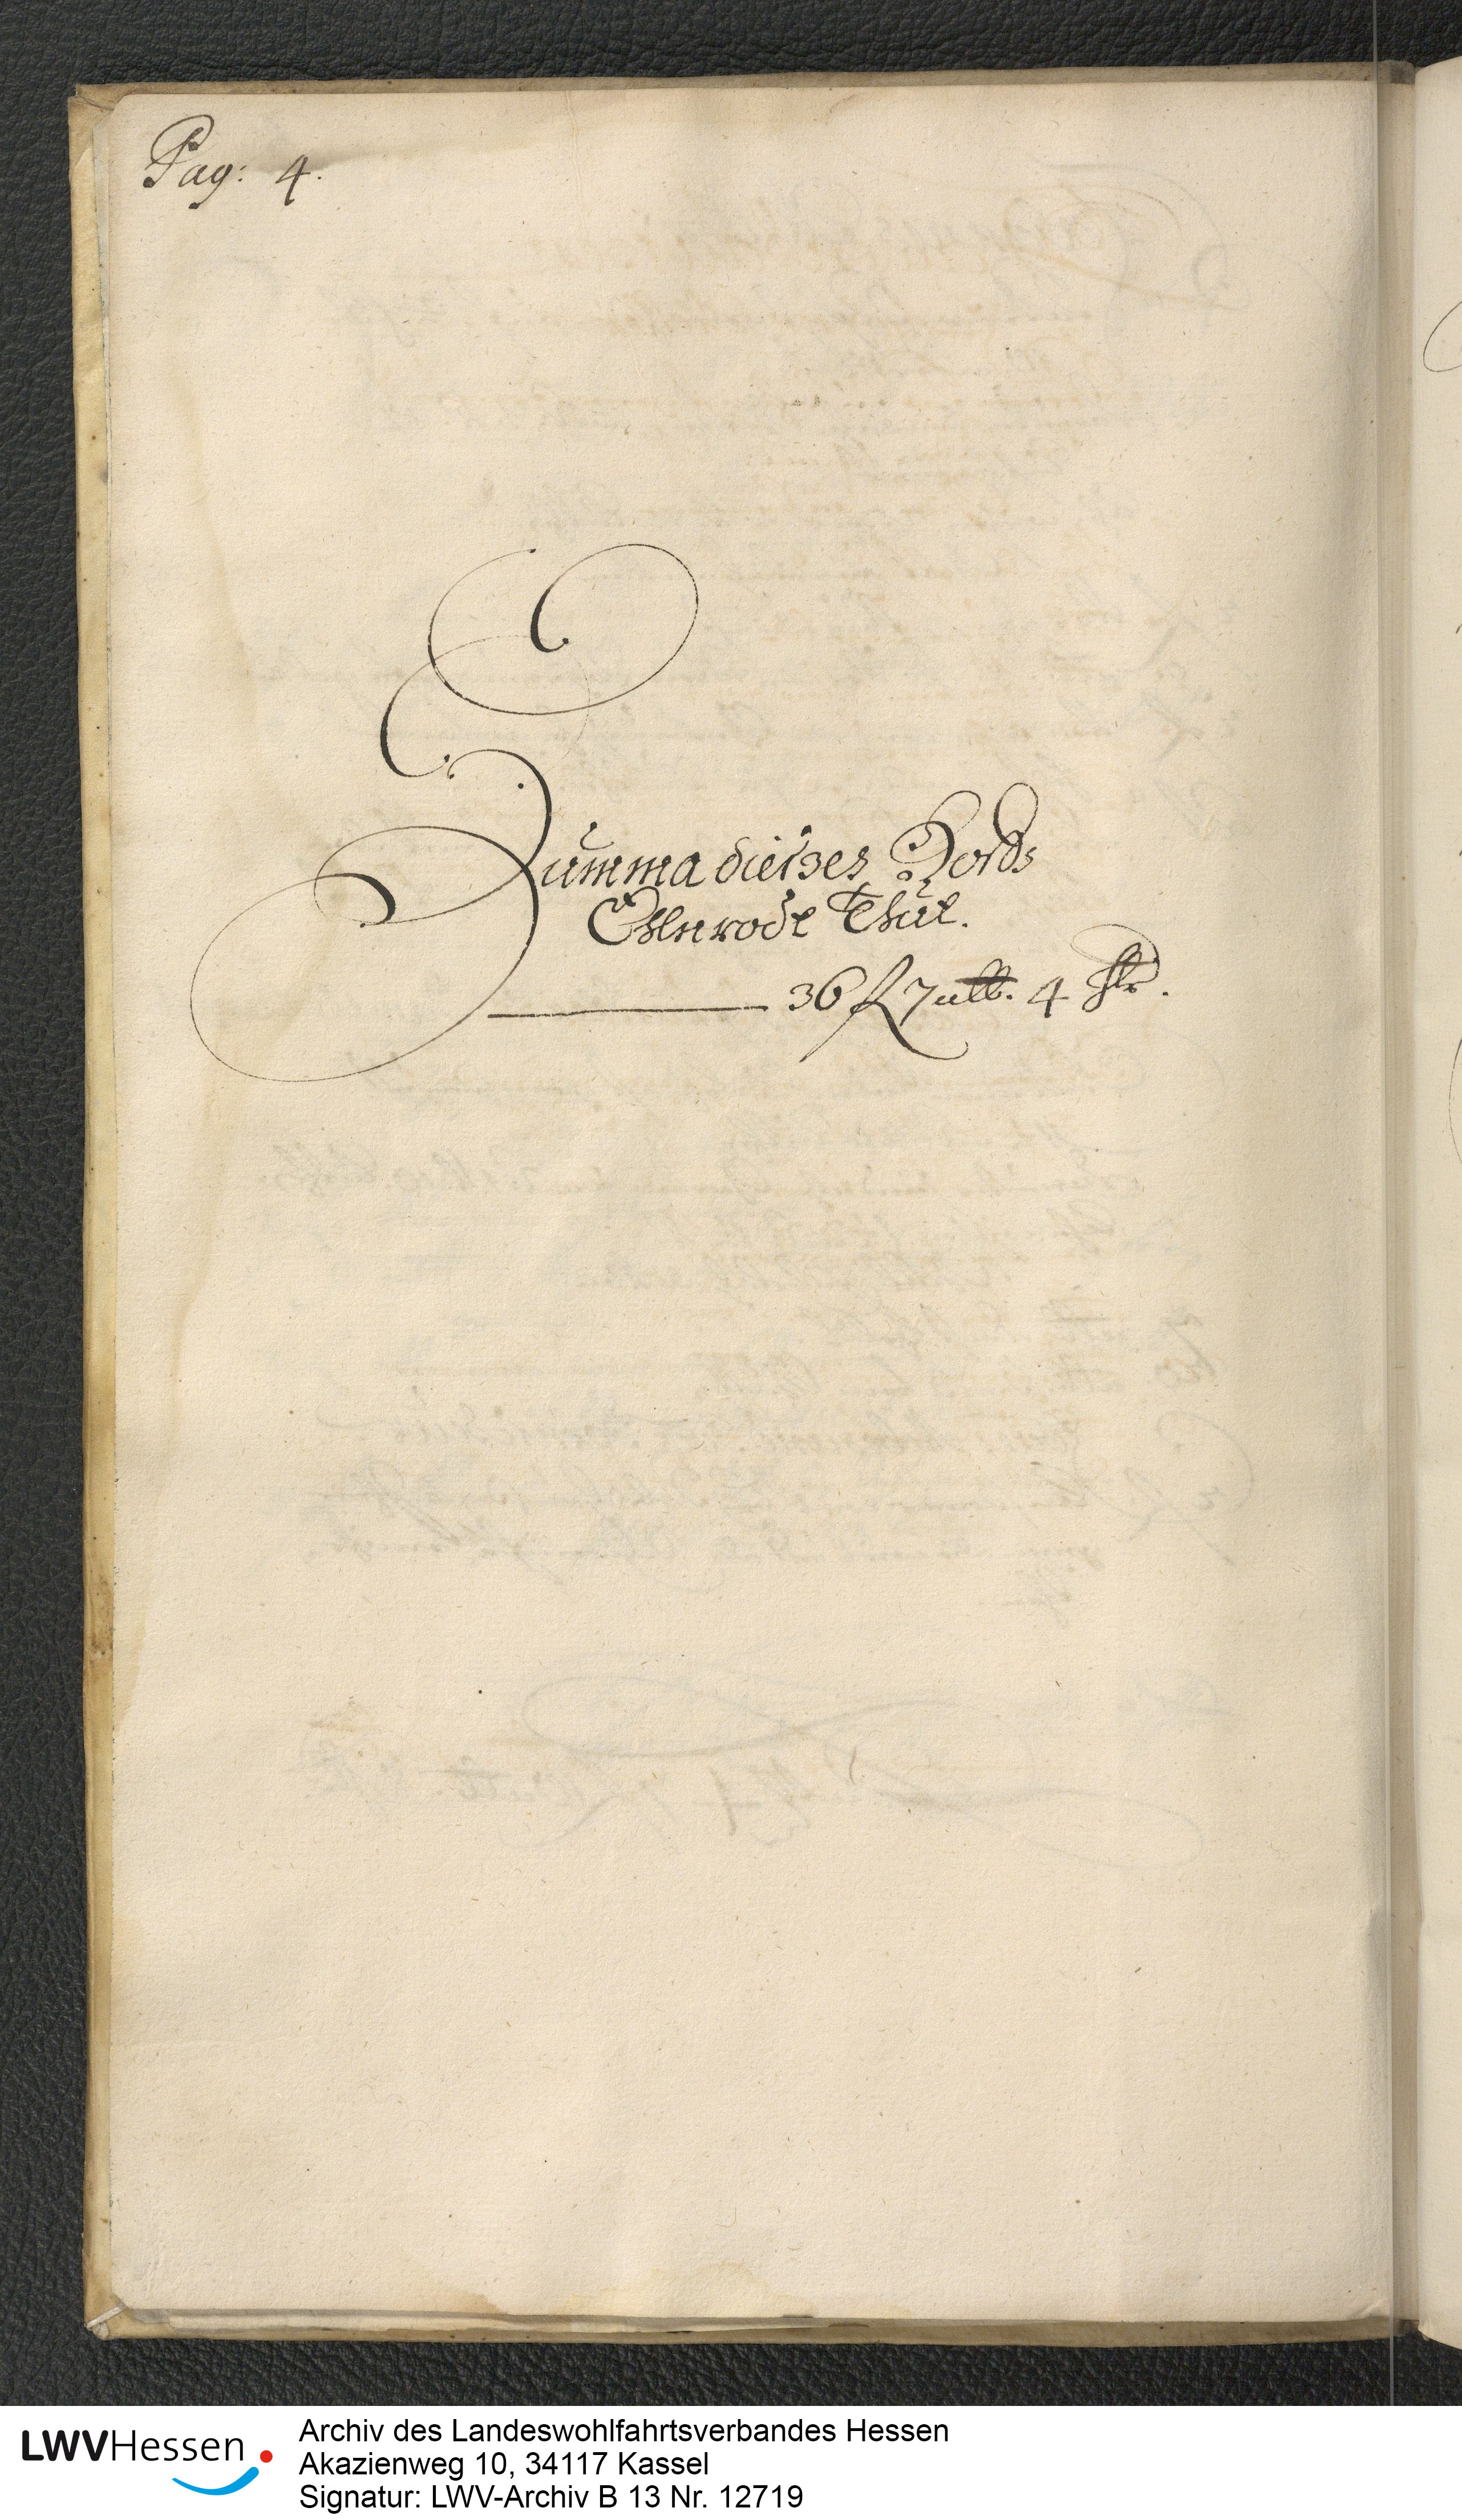 Pag: 4.
Summa dieses Hofs
thut.
36 fl 7 alb. 4 hlr.
LWVHessen
Archiv des Landeswohlfahrtsverbandes Hessen
Akazienweg 10, 34117 Kassel
Signatur: LWV-Archiv B 13 Nr. 12719